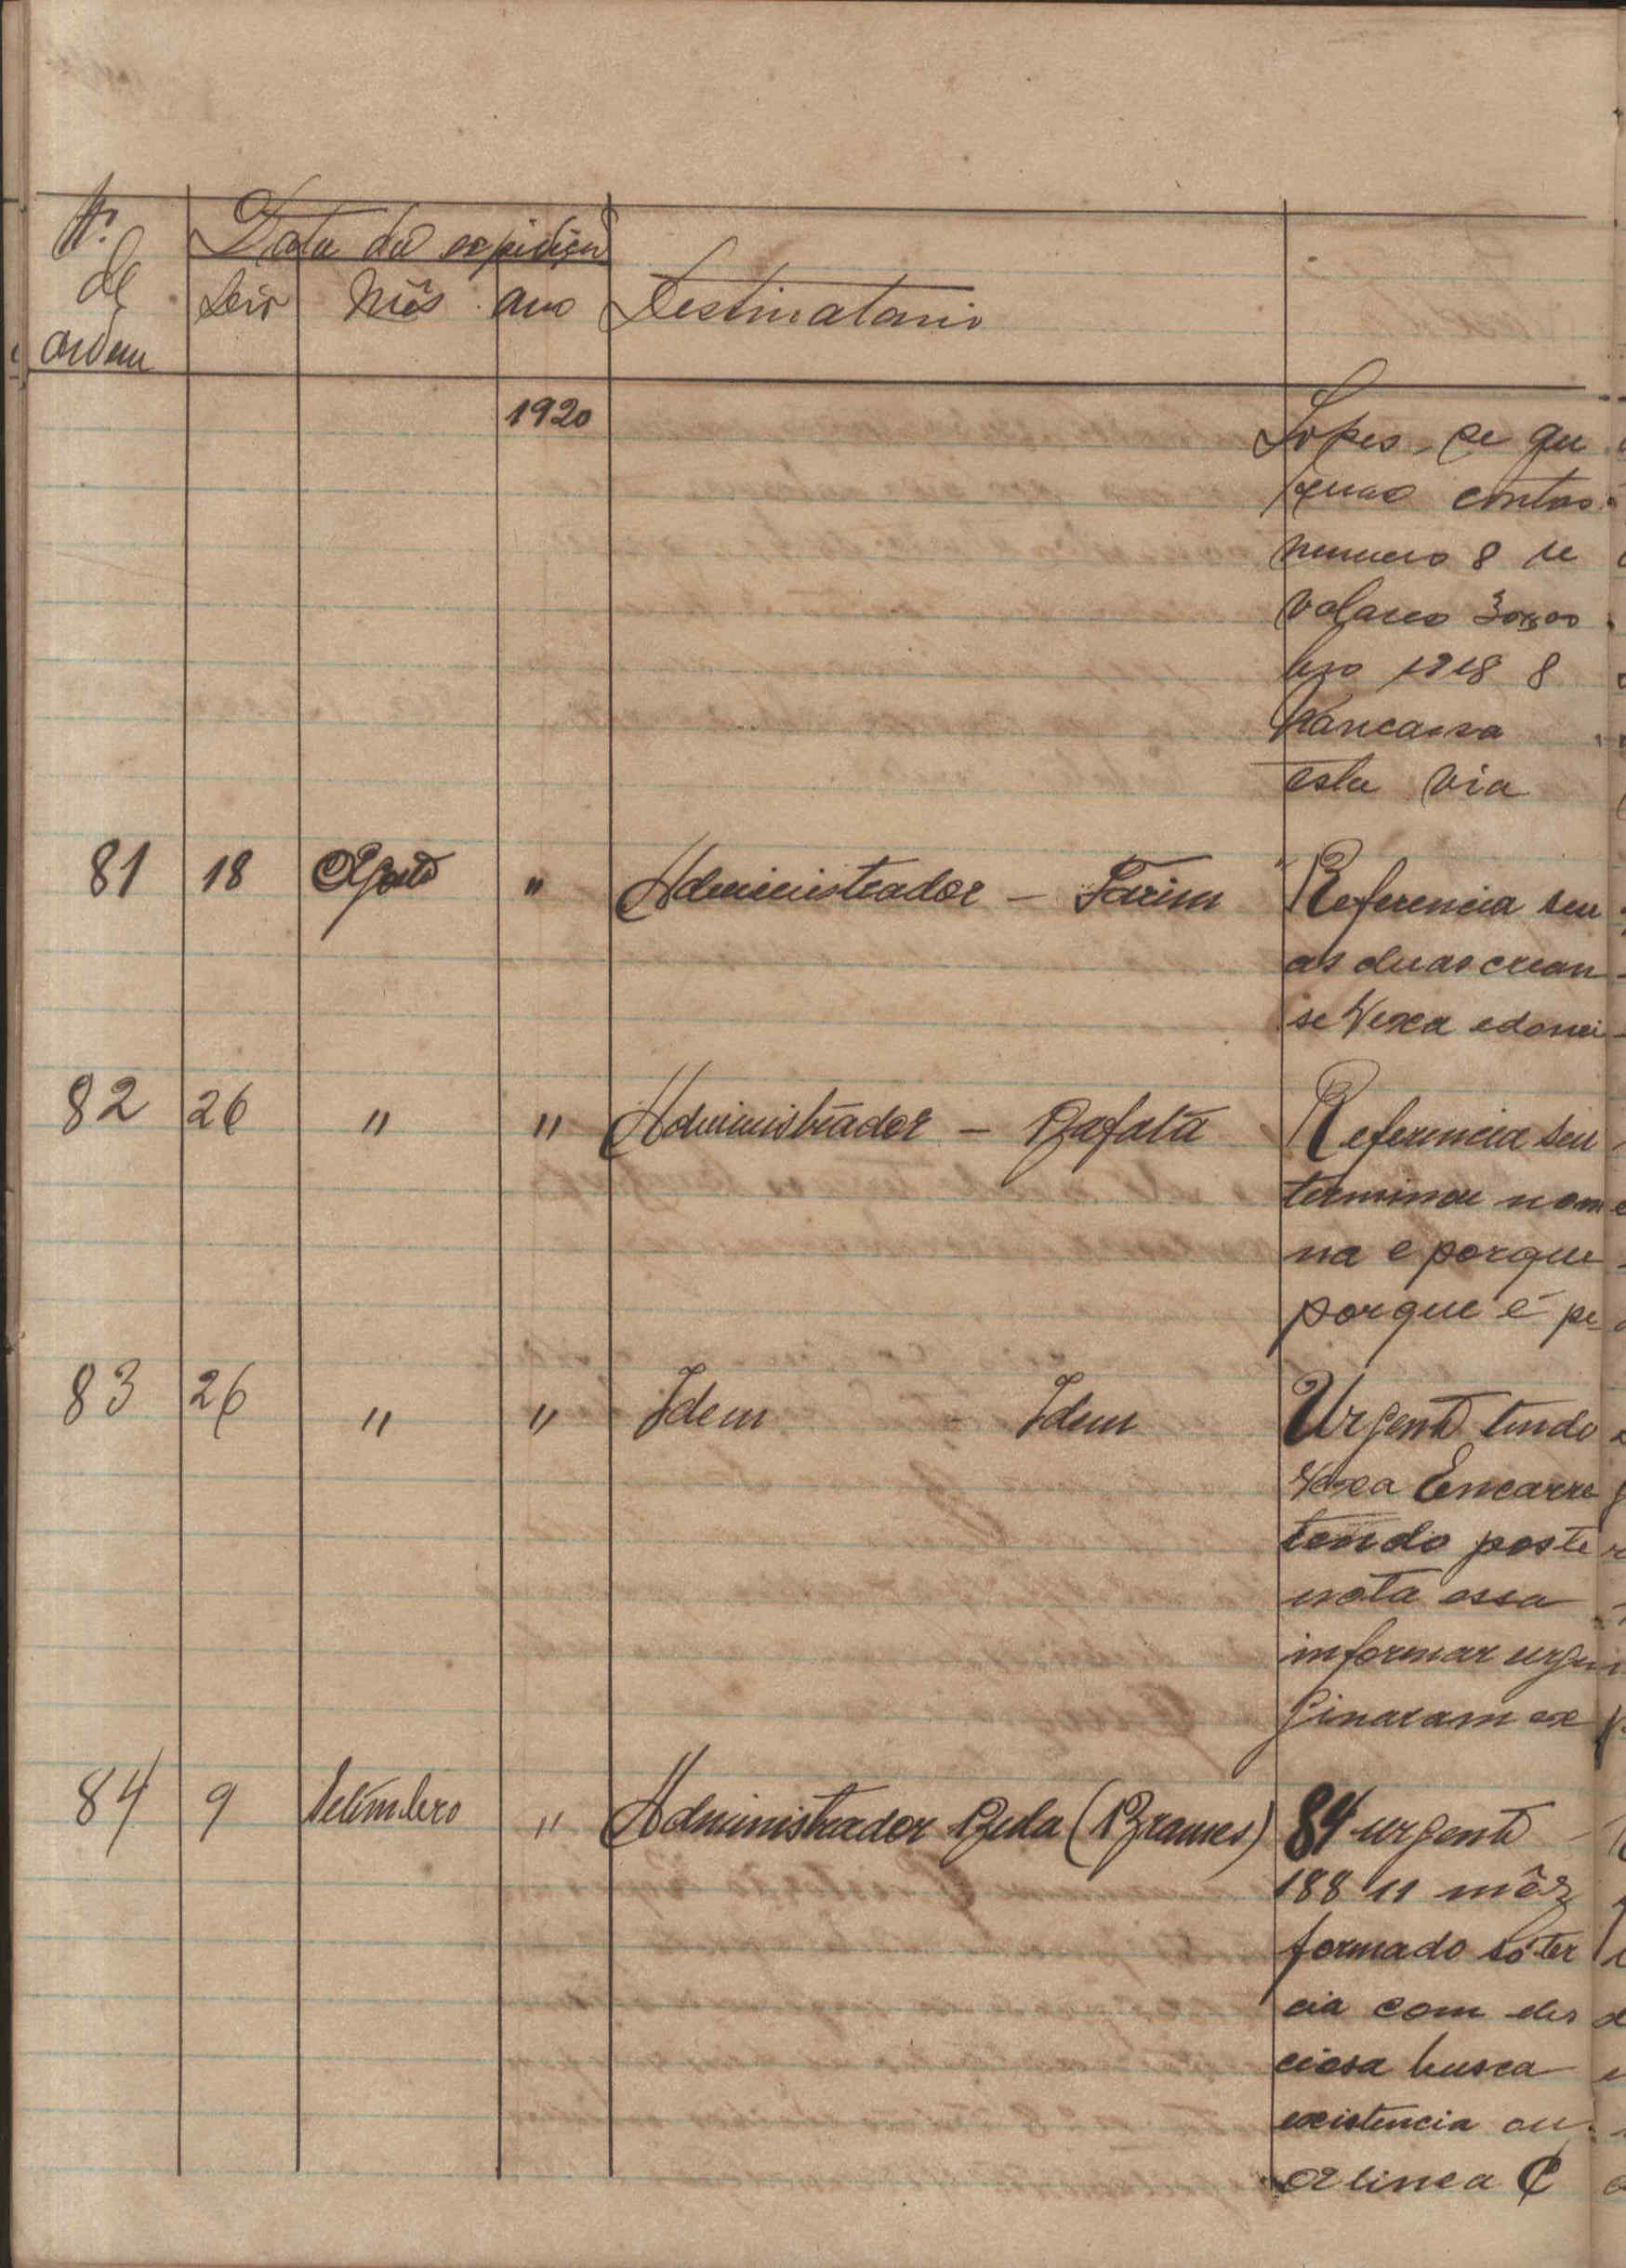 Nº
de
ordem
Data da expedição
Dia
Mês
ano
Destinatario
1920
Lopes se que
contas
numero 8 de
valores 30$00
1918 8
Mancassa
esta via
81 18 Agosto " Administrador - Farim Referencia seu
as duas crean-
se Vexa
82 26 " " Administrador - Bafatá Referencia seu
terminou nome
na e porque
porque é pe
83 26 " " Idem - Idem Urgente tendo
Vexa Encarreg
tendo poster
nota essa
informar urgen
ginaram exp
84 9 Setembro " Administrador Buba (Brames) 84 urgente
188 11 mês
formado só ter
cia com des
ciosa busca
existencia ou
alinea C